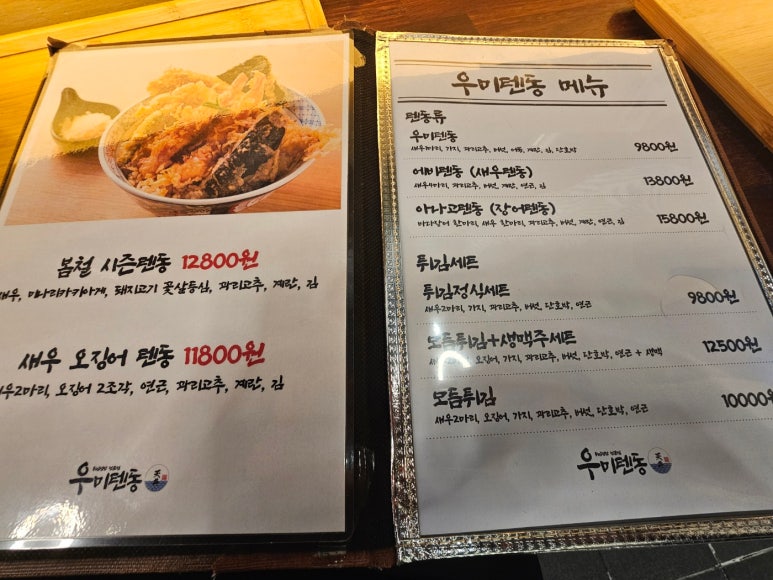 봄철 시즌텐동 12800원
새우, 미나리카키아게, 돼지고기 꽃살등심, 꽈리고추, 계란, 김
새우 오징어 텐동 11800원
새우2마리, 오징어 2조각, 연근, 꽈리고추, 계란, 김
우미텐동
우미텐동 메뉴
텐동류
우미텐동 9800원
가지, 꽈리고추, 버섯, 계란, 김, 단호박
에비텐동 (새우텐동) 13800원
새우4마리, 꽈리고추, 버섯, 계란, 연근, 김
아나고텐동 (장어텐동) 15800원
바다장어 한마리, 새우 한마리, 꽈리고추, 버섯, 계란, 연근, 김
튀김세트
튀김정식세트 9800원
새우2마리, 가지, 꽈리고추, 버섯, 단호박, 연근
모듬튀김+생맥주세트 12500원
오징어, 가지, 꽈리고추, 버섯, 단호박, 연근 + 생맥
모듬튀김 10000원
새우2마리, 오징어, 가지, 꽈리고추, 버섯, 단호박, 연근
우미텐동